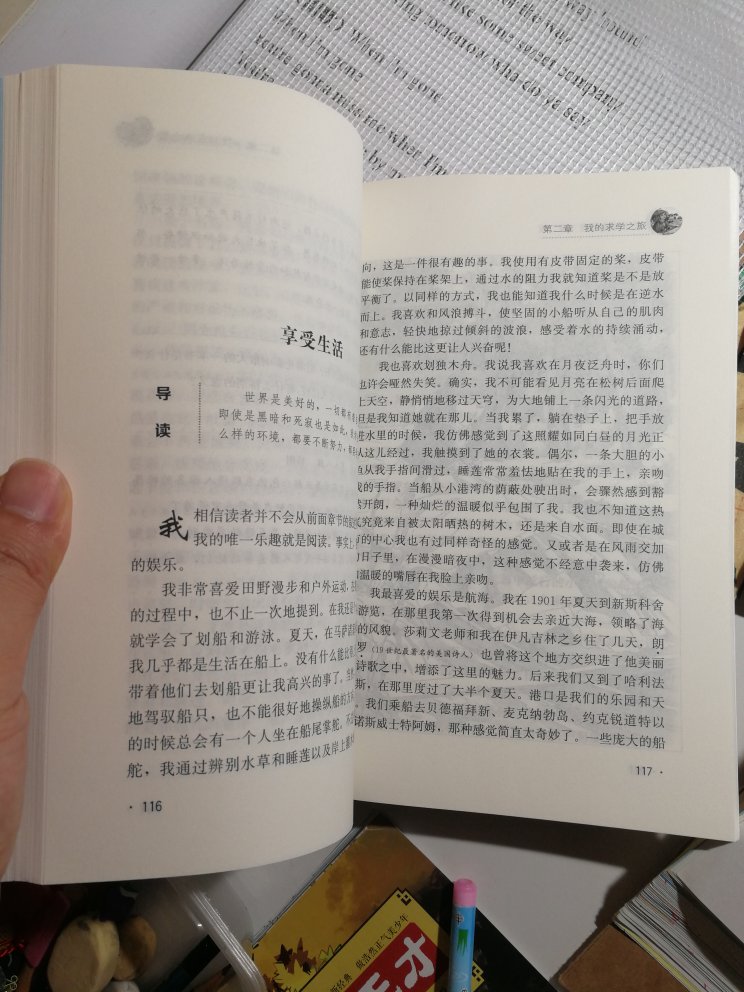 When I'm gone
When I'm gone
You're gonna miss me when I'm
享受生活
导
读
世界是美好的，一切都
即使是黑暗和死寂也是如此，
么样的环境，都要不断努力，
我 相信读者并不会从前面章节的
我的唯一乐趣就是阅读。事实上
的娱乐。
我非常喜爱田野漫步和户外运动，
的过程中，也不止一次地提到。在我还
就学会了划船和游泳。夏天，在马萨诸
我几乎都是生活在船上。没有什么能比
带着他们去划船更让我高兴的事了。
地驾驭船只，也不能很好地操纵船的方
的时候总会有一个人坐在船尾掌舵。
舵，我通过辨别水草和睡莲以及岸上灌
· 116
第二章 我的求学之旅
向，这是一件很有趣的事。我使用有皮带固定的桨，皮带
能使桨保持在桨架上，通过水的阻力我就知道桨是不是放
平衡了。以同样的方式，我也能知道我什么时候是在逆水
而上。我喜欢和风浪搏斗，使坚固的小船听从自己的肌肉
和意志，轻快地掠过倾斜的波浪，感受着水的持续涌动，
还有什么能比这更让人兴奋呢！
我也喜欢划独木舟。我说我喜欢在月夜泛舟时，你们
也许会哑然失笑。确实，我不可能看见月亮在松树后面爬
上天空，静悄悄地移过天穹，为大地铺上一条闪光的道路，
但是我知道她就在那儿。当我累了，躺在垫子上，把手放
进水里的时候，我仿佛感觉到了这照耀如同白昼的月光正
从这儿经过，我触摸到了她的衣裳。偶尔，一条大胆的小
鱼从我手指间滑过，睡莲常常羞怯地贴在我的手上，亲吻
我的手指。当船从小港湾的荫蔽处驶出时，会骤然感到豁
然开朗，一种灿烂的温暖似乎包围了我。我也不知道这热
气究竟来自被太阳晒热的树木，还是来自水面。即使在城
市的中心我也有过同样奇怪的感觉。又或者是在风雨交加
的日子里，在漫漫暗夜中，这种感觉不经意中袭来，仿佛
温暖的嘴唇在我脸上亲吻。
我最喜爱的娱乐是航海。我在 1901 年夏天到新斯科舍
游览，在那里我第一次得到机会去亲近大海，领略了海
的风貌。莎莉文老师和我在伊凡吉林之乡住了几天，朗
罗（19世纪最著名的美国诗人）也曾将这个地方交织进了他美丽
诗歌之中，增添了这里的魅力。后来我们又到了哈利法
斯，在那里度过了大半个夏天。港口是我们的乐园和天
。我们乘船去贝德福拜新、麦克纳勃岛、约克锐道特以
诺斯威士特阿姆，那种感觉简直太奇妙了。一些庞大的船
117 ·
做浩然正气美少年
才